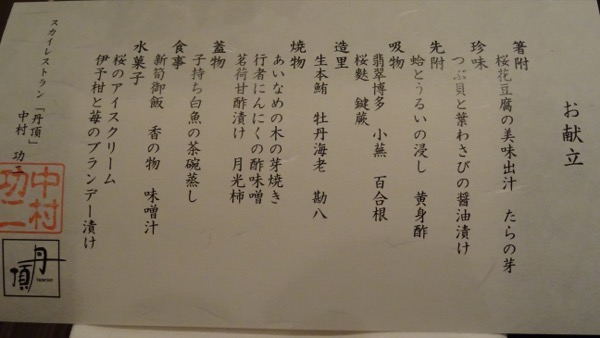 お献立
箸附
桜花豆腐の美味出汁　たらの芽
珍味
つぶ貝と葉わさびの醤油漬け
先附
蛤とうるいの浸し　黄身酢
吸物
翡翠博多　小蕪　百合根
桜麩　鍵蕨
造里
生本鮪　牡丹海老　勘八
焼物
あいなめの木の芽焼き
行者にんにくの酢味噌
茗荷甘酢漬け　月光柿
蓋物
子持ち白魚の茶碗蒸し
食事
新筍御飯　香の物　味噌汁
水菓子
桜のアイスクリーム
伊予柑と苺のブランデー漬け
スカイレストラン「丹頂」
中村　功二
中村
功二
丹頂